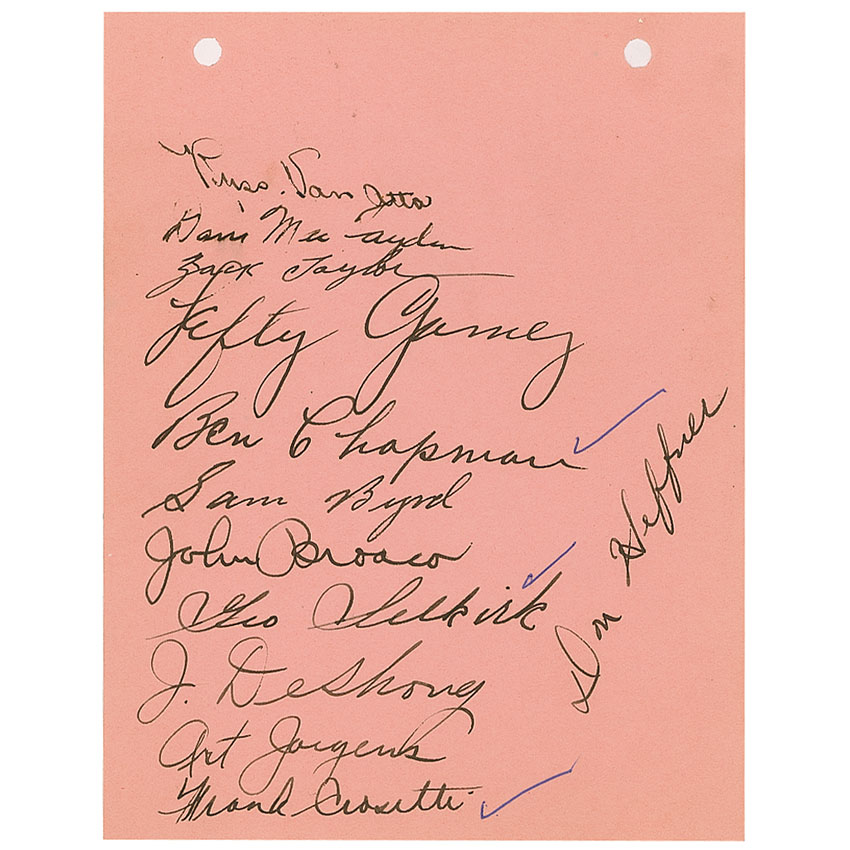 Russ. Van Atta
Zack Taylor
Lefty Gomez
Ben Chapman
Sam Byrd
John Broaca
Geo Selkirk
J. DeShong
Art Jorgens
Frank Crosetti
Don Heffner